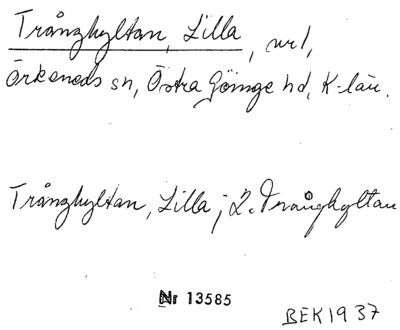 Trånghyltan, Lilla, url,
Örkeneds sn, Östra Göinge hd, K-län.
Trånghyltan, Lilla; L. Trånghyltan
Nr 13585
BEK 1937